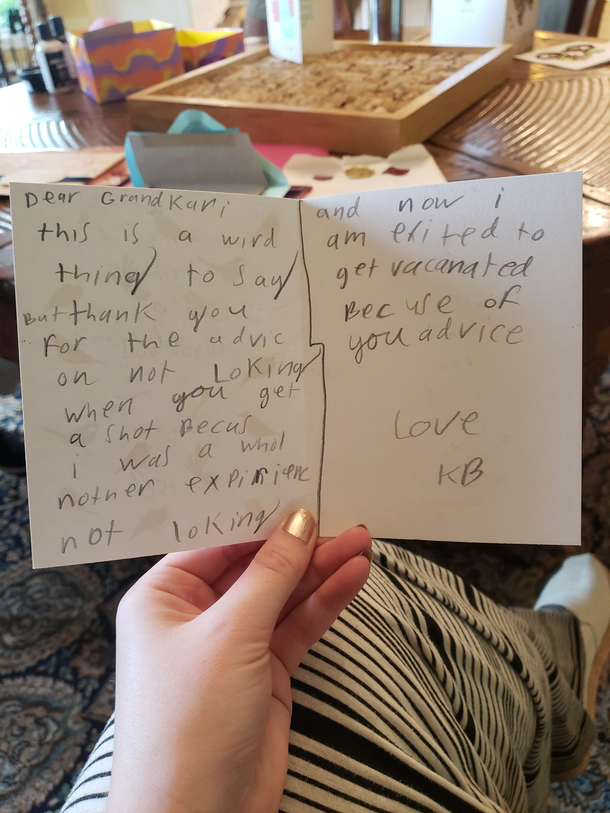 Dear GrandKari
this is a wird
thing to say
But thank you
for the advic
on not Loking
when you get
a shot Becus
i was a whol
nother expirienc
not loking
and now i
am exited to
get vacanated
Becuse of
you advice
Love
KB